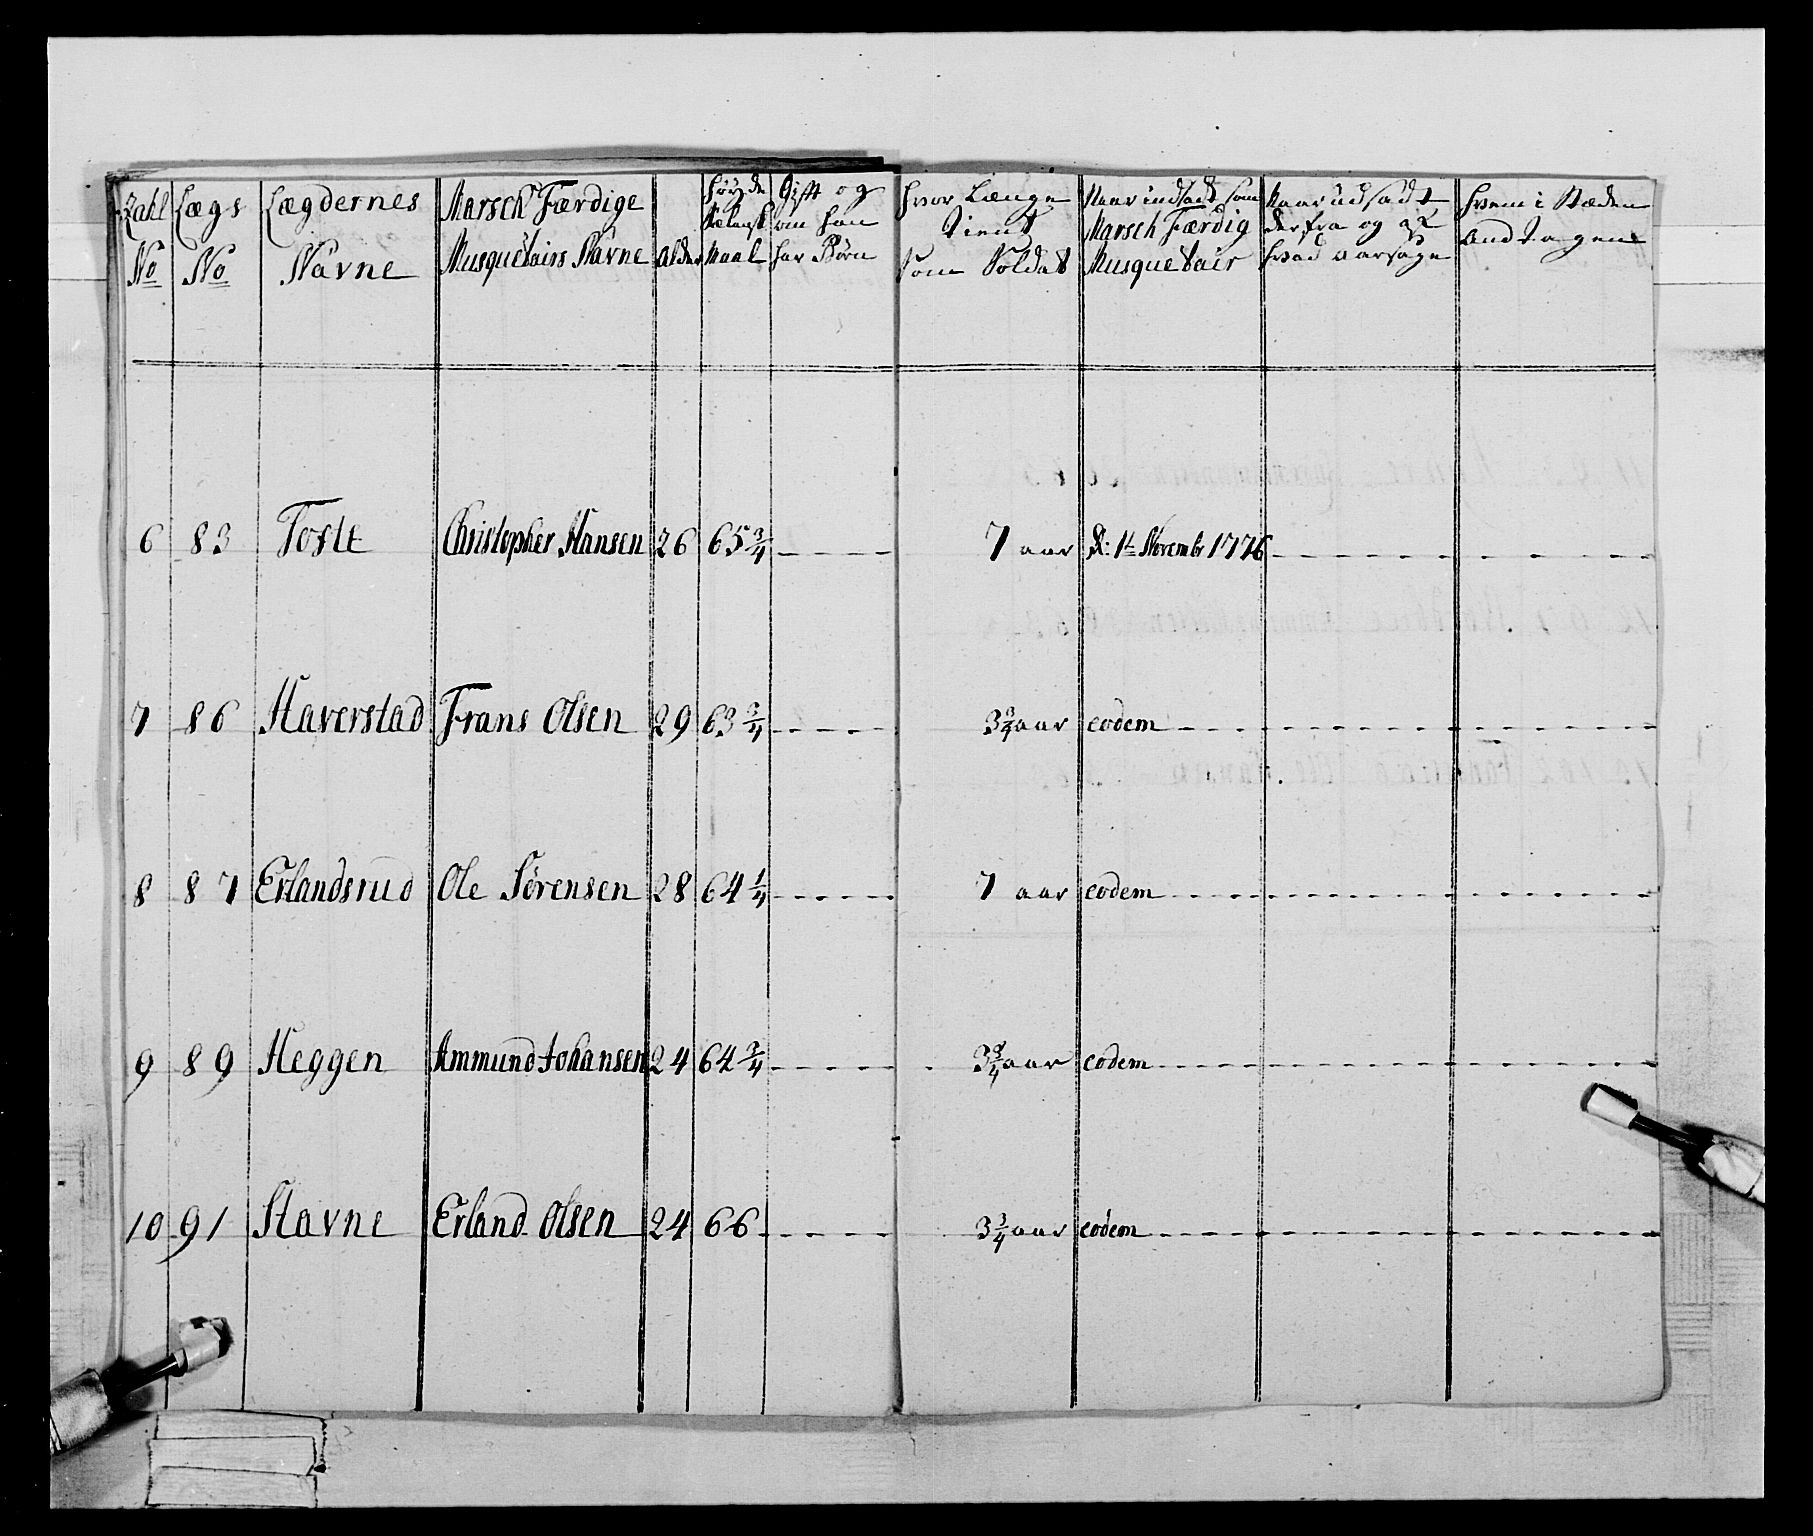 Zahl No | Lægs No | Lægdernes Navne | Marsch Færdige Musquetairs Navne | Alder | Høyde Sælansk Maal | Gift og om han har Børn | Hvor Længe tient som Soldat | Naar indsadt som Marsch Færdig Musquetair | Naar udsadt derfra og af hvad aarsage | Hvem i Stæden Andtagen
6 | 83 | Toste | Christopher Hansen | 26 | 65 3/4 | | 7 aar | D: 1t Novembr 1776
7 | 86 | Haverstad | Frans Olsen | 29 | 63 3/4 | | 3 3/4 aar | eodem
8 | 87 | Erlandsrud | Ole Sörensen | 28 | 64 1/4 | | 7 aar | eodem
9 | 89 | Heggen | Ammund Johansen | 24 | 64 3/4 | | 3 3/4 aar | eodem
10 | 91 | Stavne | Erland Olsen | 24 | 66 | | 3 3/4 aar | eodem